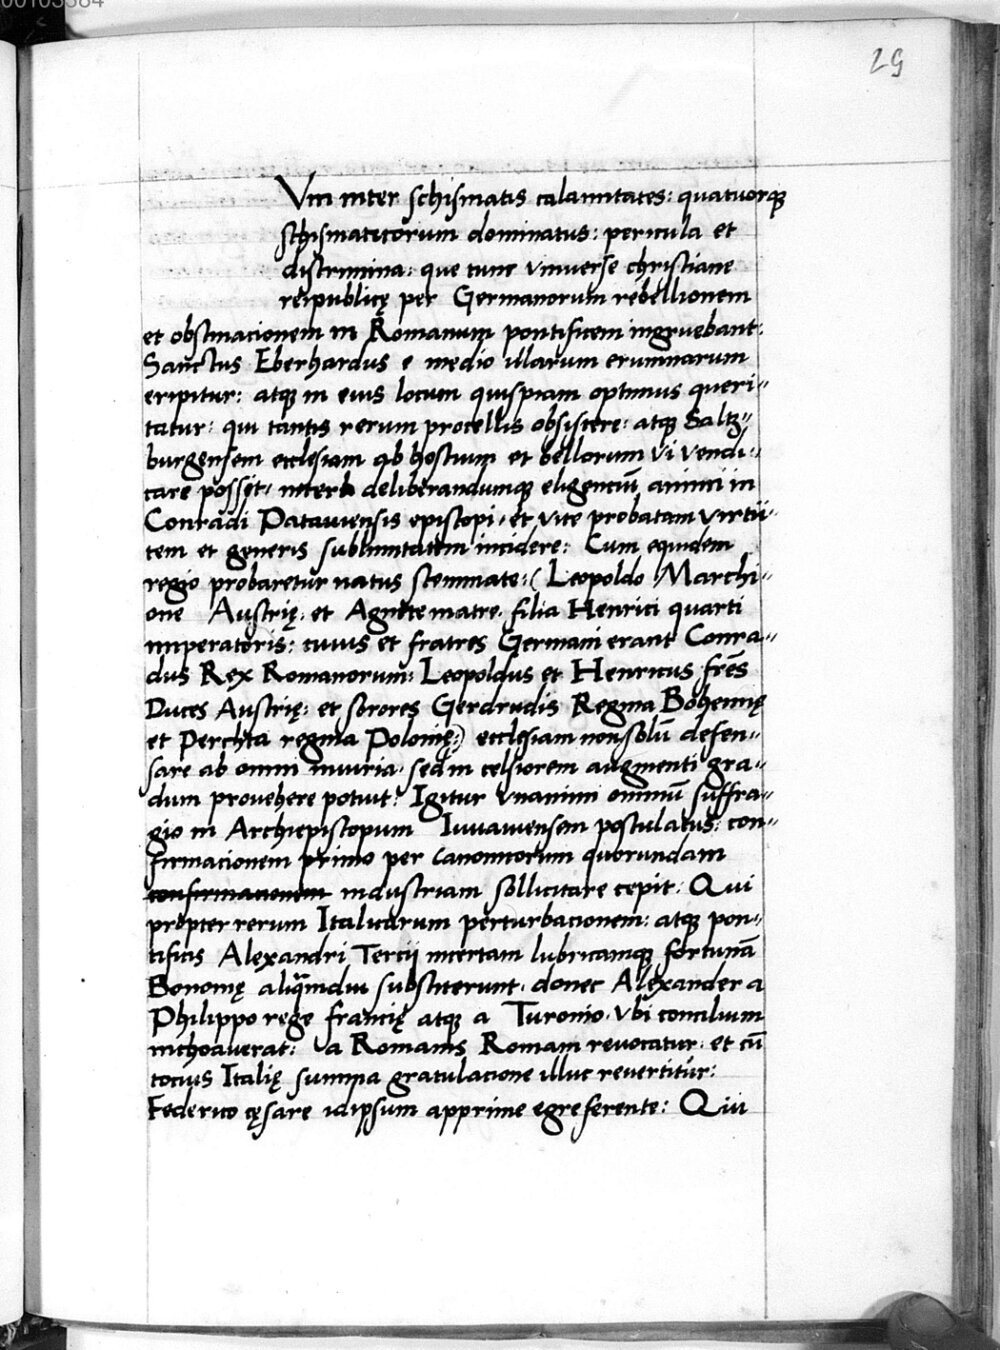 00103384
29
Vm inter schismatis calamitates: quatuorq̨
schismaticorum dominatus: pericula et
discrimina: que tunc vniuerse christiane
reipublicę per Germanorum rebellionem
et obstinacionem in Romanum pontificem ingruebant:
Sanctus Eberhardus e medio illarum erumnarum
eripitur: atq̨ in eius locum quispiam optimus queri-
tatur: qui tantis rerum procellis obsistere: atq̨ Saltz-
burgensem ecclesiam ab hostium et bellorum vi vendi-
care possit, deliberandumq̨ eligenciū animi in
Conradi Patauiensis episcopi, et vite probatam virtu-
tem et generis sublimitatem incidere: Cum equidem
regio probaretur natus stemmate: (Leopoldo Marchi-
one Austrię, et Agnete matre, filia Henrici quarti
imperatoris: cuius et fratres Germani erant Conra-
dus Rex Romanorum: Leopoldus et Henricus fr̄es
Duces Austrię: et sorores Gerdrudis Regina Bohemię
et Perchta regina Polonię:) ecclesiam non solū defen-
sare ab omni iniuria, sed in celsiorem augmenti gra-
dum prouehere potuit: Igitur vnanimi omniū suffra-
gio in Archiepiscopum Iuuauiensem postulatus: con-
firmacionem primo per canonicorum quorundam
confirmacionem industriam sollicitare cepit: Qui
propter rerum Italicarum perturbacionem: atq̨ pon-
tificis Alexandri Tercij incertam lubricamq̨ fortunā
Bononię aliq̄mdiu substiterunt, donec Alexander a
Philippo rege francię atq̨ a Turonio, vbi concilium
inchoauerat: a Romanis Romam reuocatur, et cū
tocius Italię summa gratulacione illuc reuertitur:
Federico cęsare idipsum apprime egre ferente: Qui